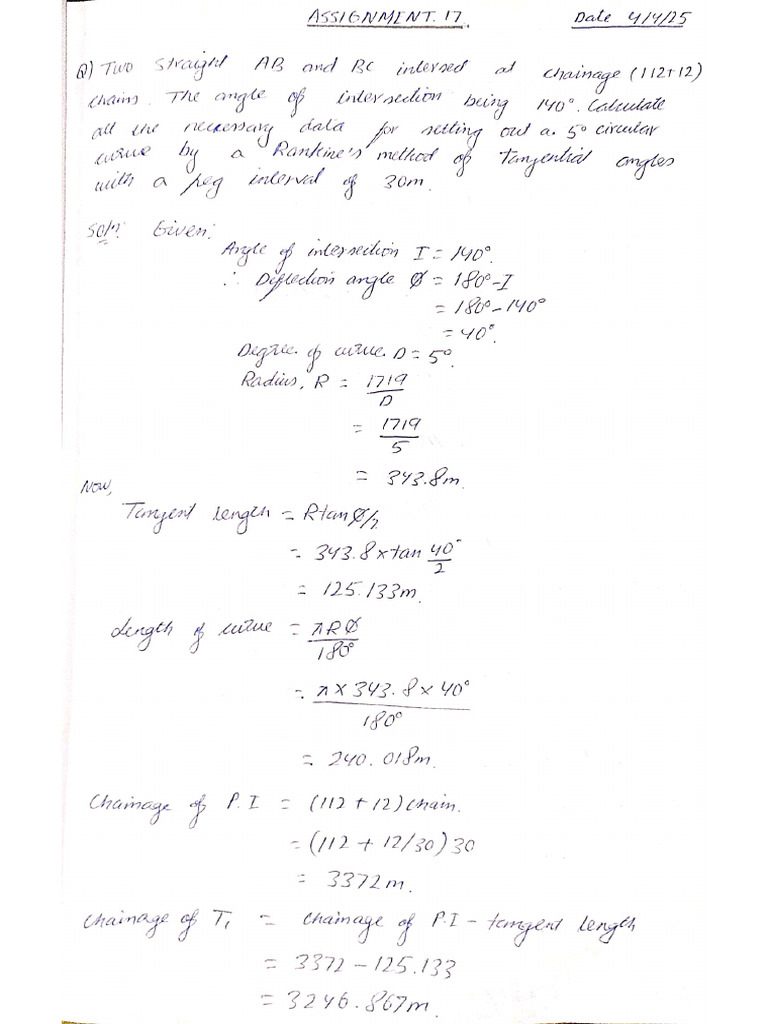 ASSIGNMENT. 17. Date 4/4/25
Q) Two straight AB and BC intersed at chainage (112+12)
chains. The angle of intersection being 140°. Calculate
all the necessary data for setting out a 5° circular
curve by a Rankine's method of Tangential angles
with a peg interval of 30m.
Soln: Given:
Angle of intersection I = 140°.
∴ Deflection angle Ø = 180°-I
= 180°-140°
= 40°.
Degree of curve D = 5°.
Radius, R = 1719/D
= 1719/5
= 343.8m.
Now,
Tangent length = R tan Ø/2
= 343.8 x tan 40°/2
= 125.133m.
Length of curve = πRØ/180°
= π x 343.8 x 40°/180°
= 240.018m.
Chainage of P.I = (112 + 12) chain.
= (112 + 12/30) 30
= 3372m.
Chainage of T₁ = Chainage of P.I - tangent length
= 3372 - 125.133
= 3246.867m.